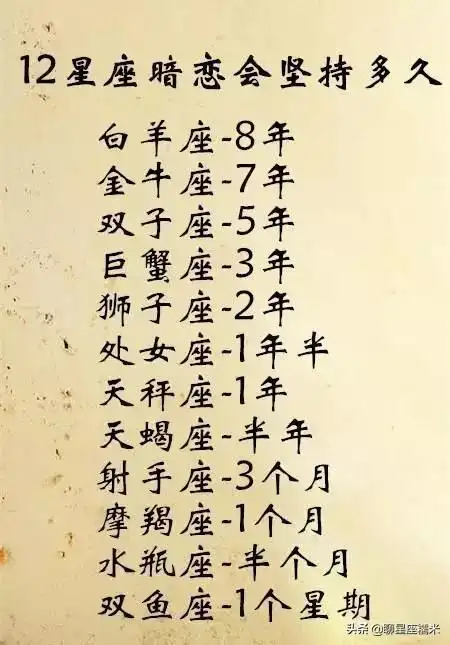 12星座暗恋会坚持多久
白羊座-8年
金牛座-7年
双子座-5年
巨蟹座-3年
狮子座-2年
处女座-1年半
天秤座-1年
天蝎座-半年
射手座-3个月
摩羯座-1个月
水瓶座-半个月
双鱼座-1个星期
头条@聊星座糯米